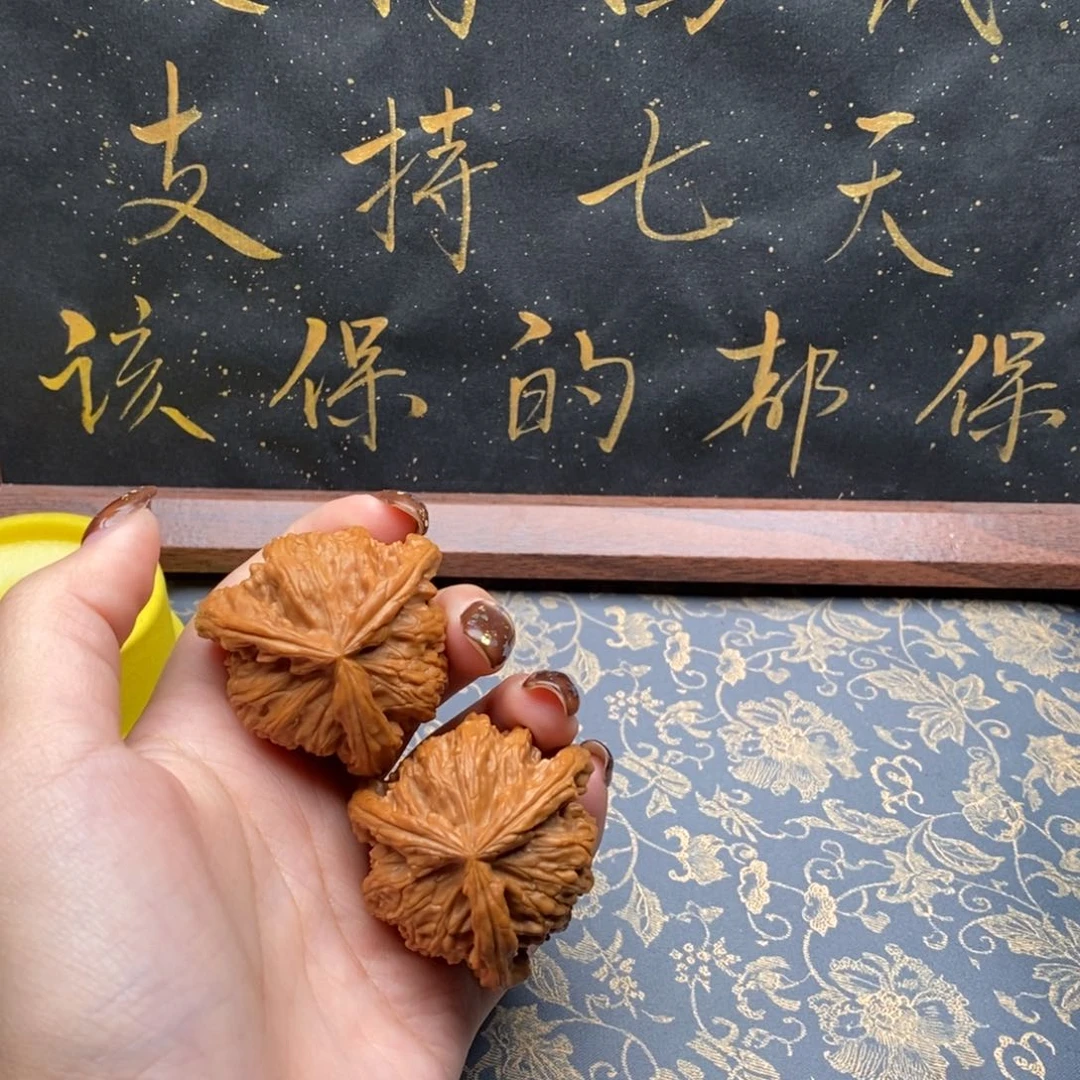 支持七天
该保的都保